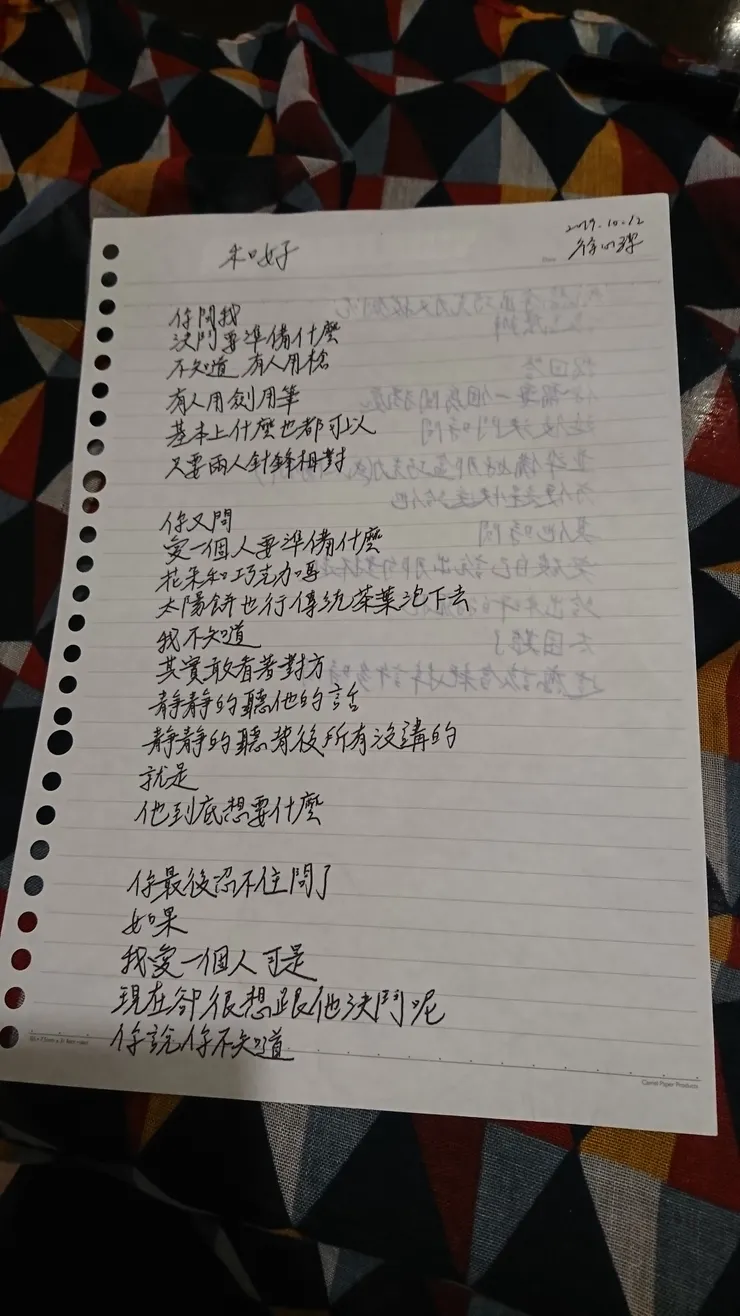 和好
2019.10.12
你問我
決鬥要準備什麼
不知道 有人用槍
有人用劍用筆
基本上什麼也都可以
只要兩人針鋒相對
你又問
愛一個人要準備什麼
花朵和巧克力嗎
太陽餅也行傳統茶葉泡下去
我不知道
其實敢看著對方
靜靜的聽他的話
靜靜的聽背後所有沒講的
就是
他到底想要什麼
你最後忍不住問了
如果
我愛一個人可是
現在卻很想跟他決鬥呢
你說你不知道
Carrot Paper Products